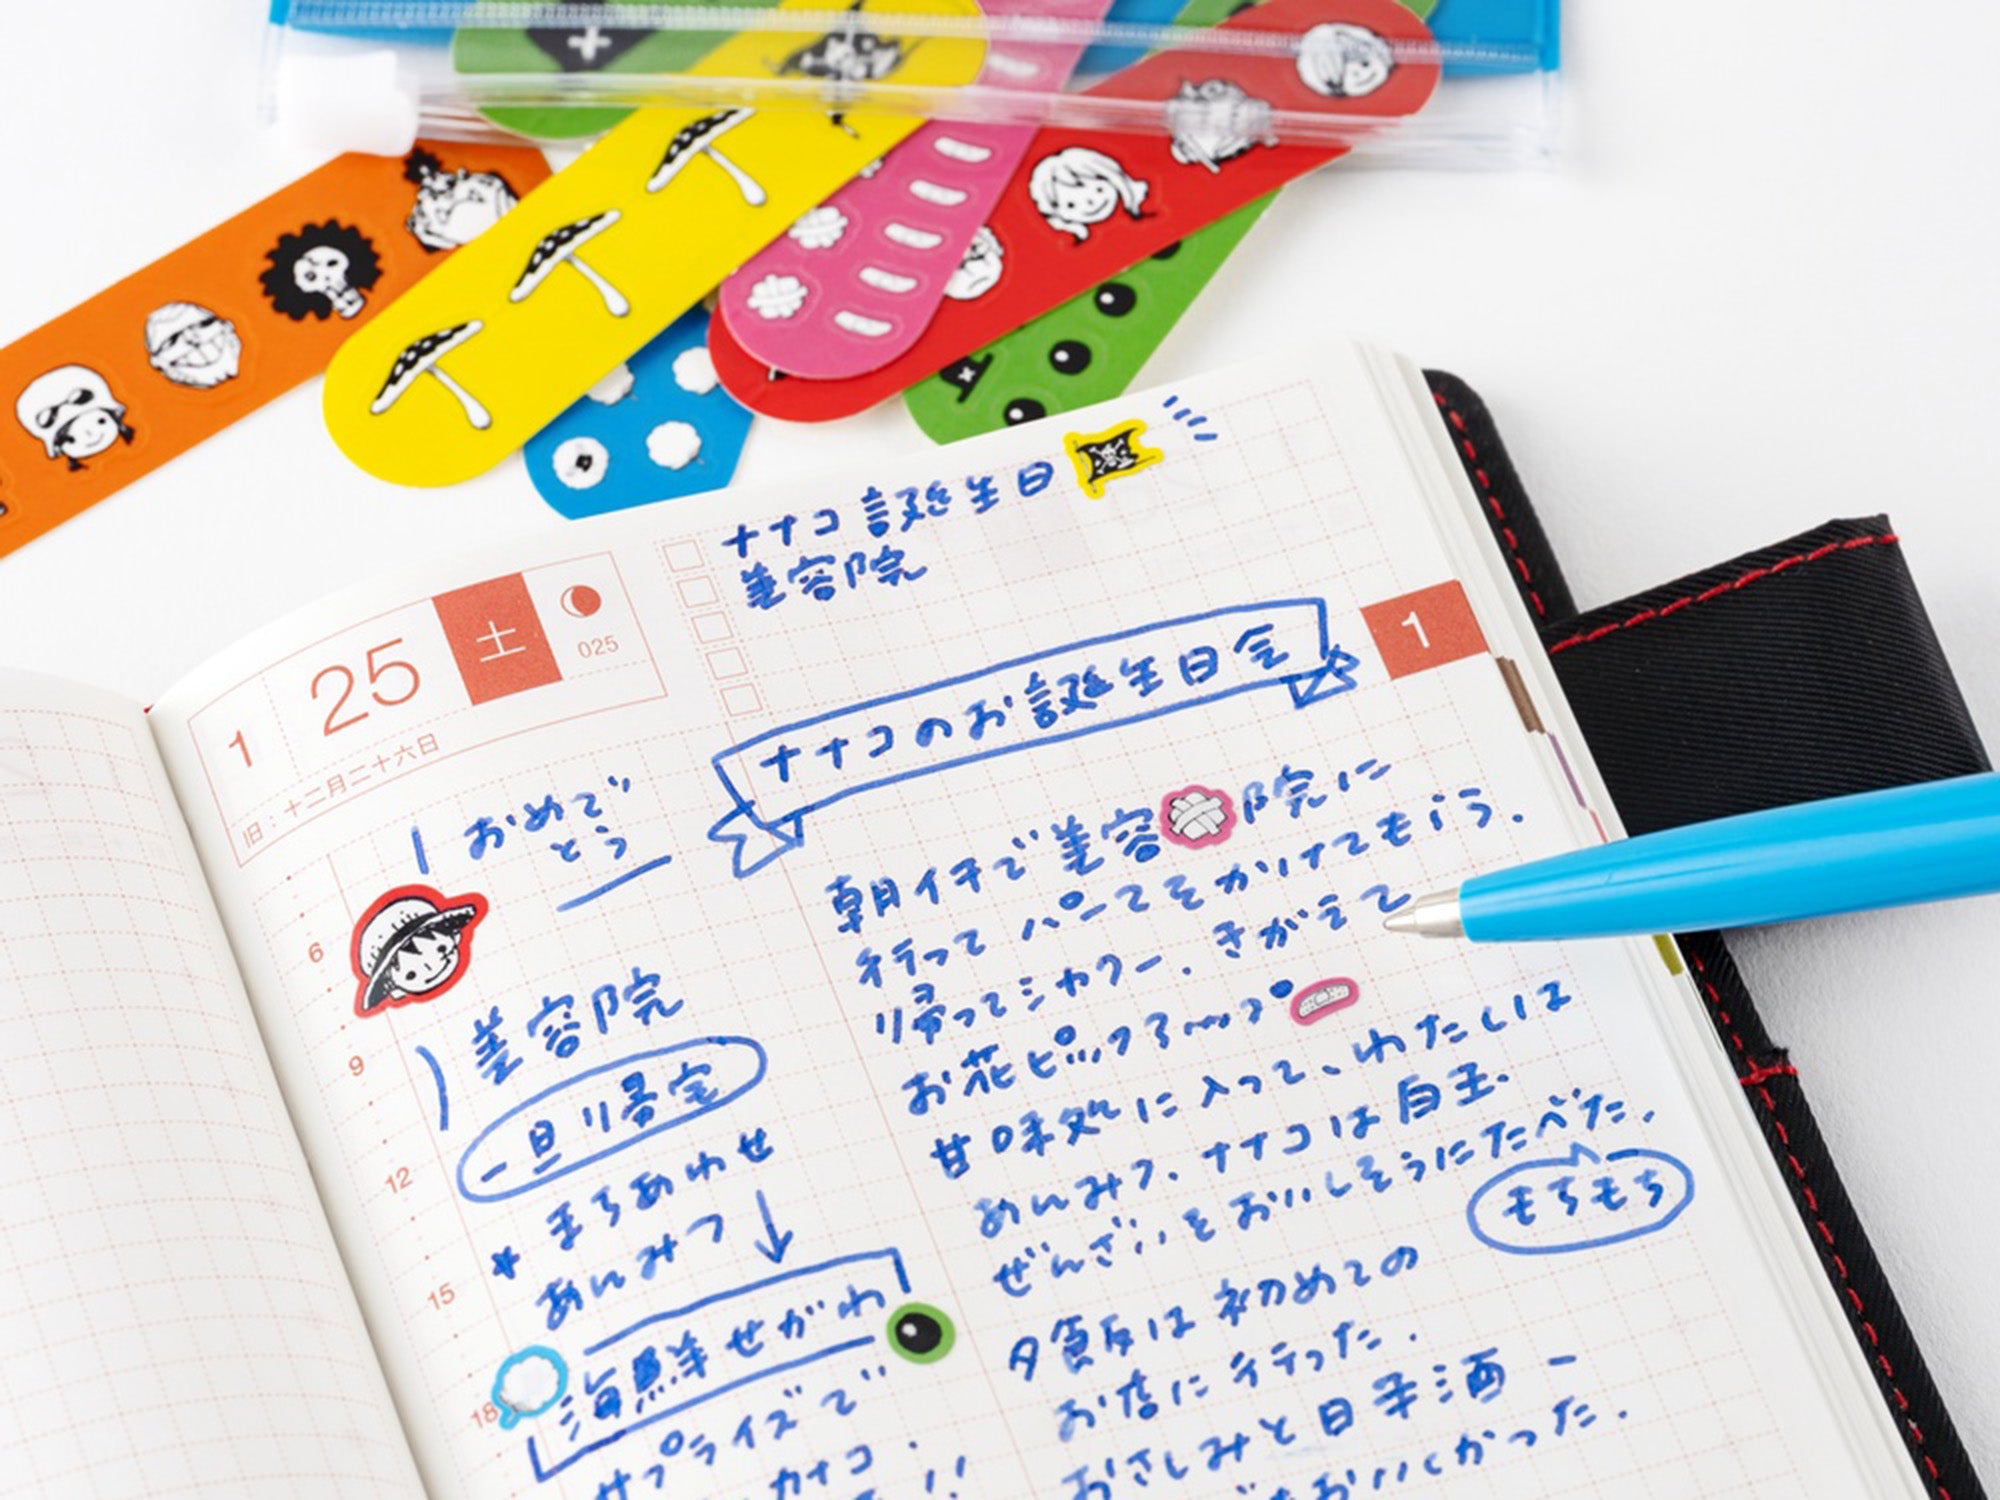 ナナコ誕生日
美容院
1
25
土
025
旧：十二月二十六日
1
ナナコのお誕生日会
おめで
とう
6
美容院
9
一旦帰宅
12
*まちあわせ
あんみつ
15
海鮮せがわ
18
サプライズで
カナコ
!!
朝イチで美容院に
行ってパーマをかけてもらう。
帰ってシャワー、きがえて
お花ピックアップ
甘味処に入って、わたしは
あんみつ、ナナコは白玉
ぜんざいをおいしそうにたべた。
もちもち
夕飯は初めての
お店に行った。
おさしみと日本酒
おいしかった。